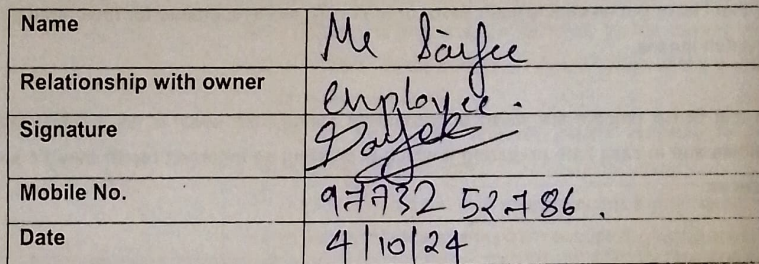 Name Mr Saifee
Relationship with owner employee.
Signature
Mobile No. 97732 52786.
Date 4/10/24